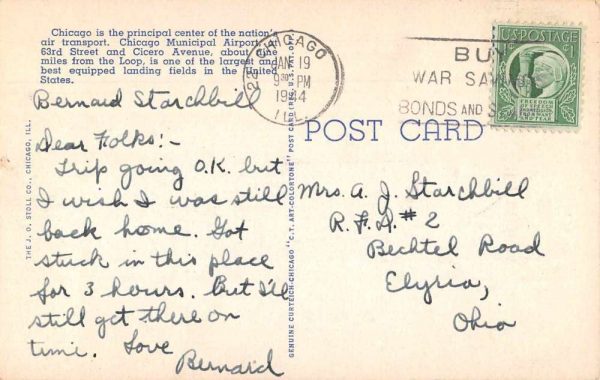 Chicago is the principal center of the nation's
air transport. Chicago Municipal Airport,
63rd Street and Cicero Avenue, about nine
miles from the Loop, is one of the largest and
best equipped landing fields in the United
States.
Bernard Starchbill
Dear Folks:-
Trip going O.K. but
I wish I was still
back home. Got
stuck in this place
for 3 hours. But I'll
still get there on
time. Love
Bernard
THE J. O. STOLL CO., CHICAGO, ILL.
GENUINE CURTEICH-CHICAGO "C.T. ART-COLORTONE" POST CARD (REG. U.S. PAT. OF
CHICAGO
JAN 19
9 30 PM
1944
ILL.
BUY
WAR SAVINGS
BONDS AND
U.S. POSTAGE
1
FREEDOM
POST CARD
Mrs. A. J. Starchbill
R.F.D. #2
Bechtel Road
Elyria,
Ohio